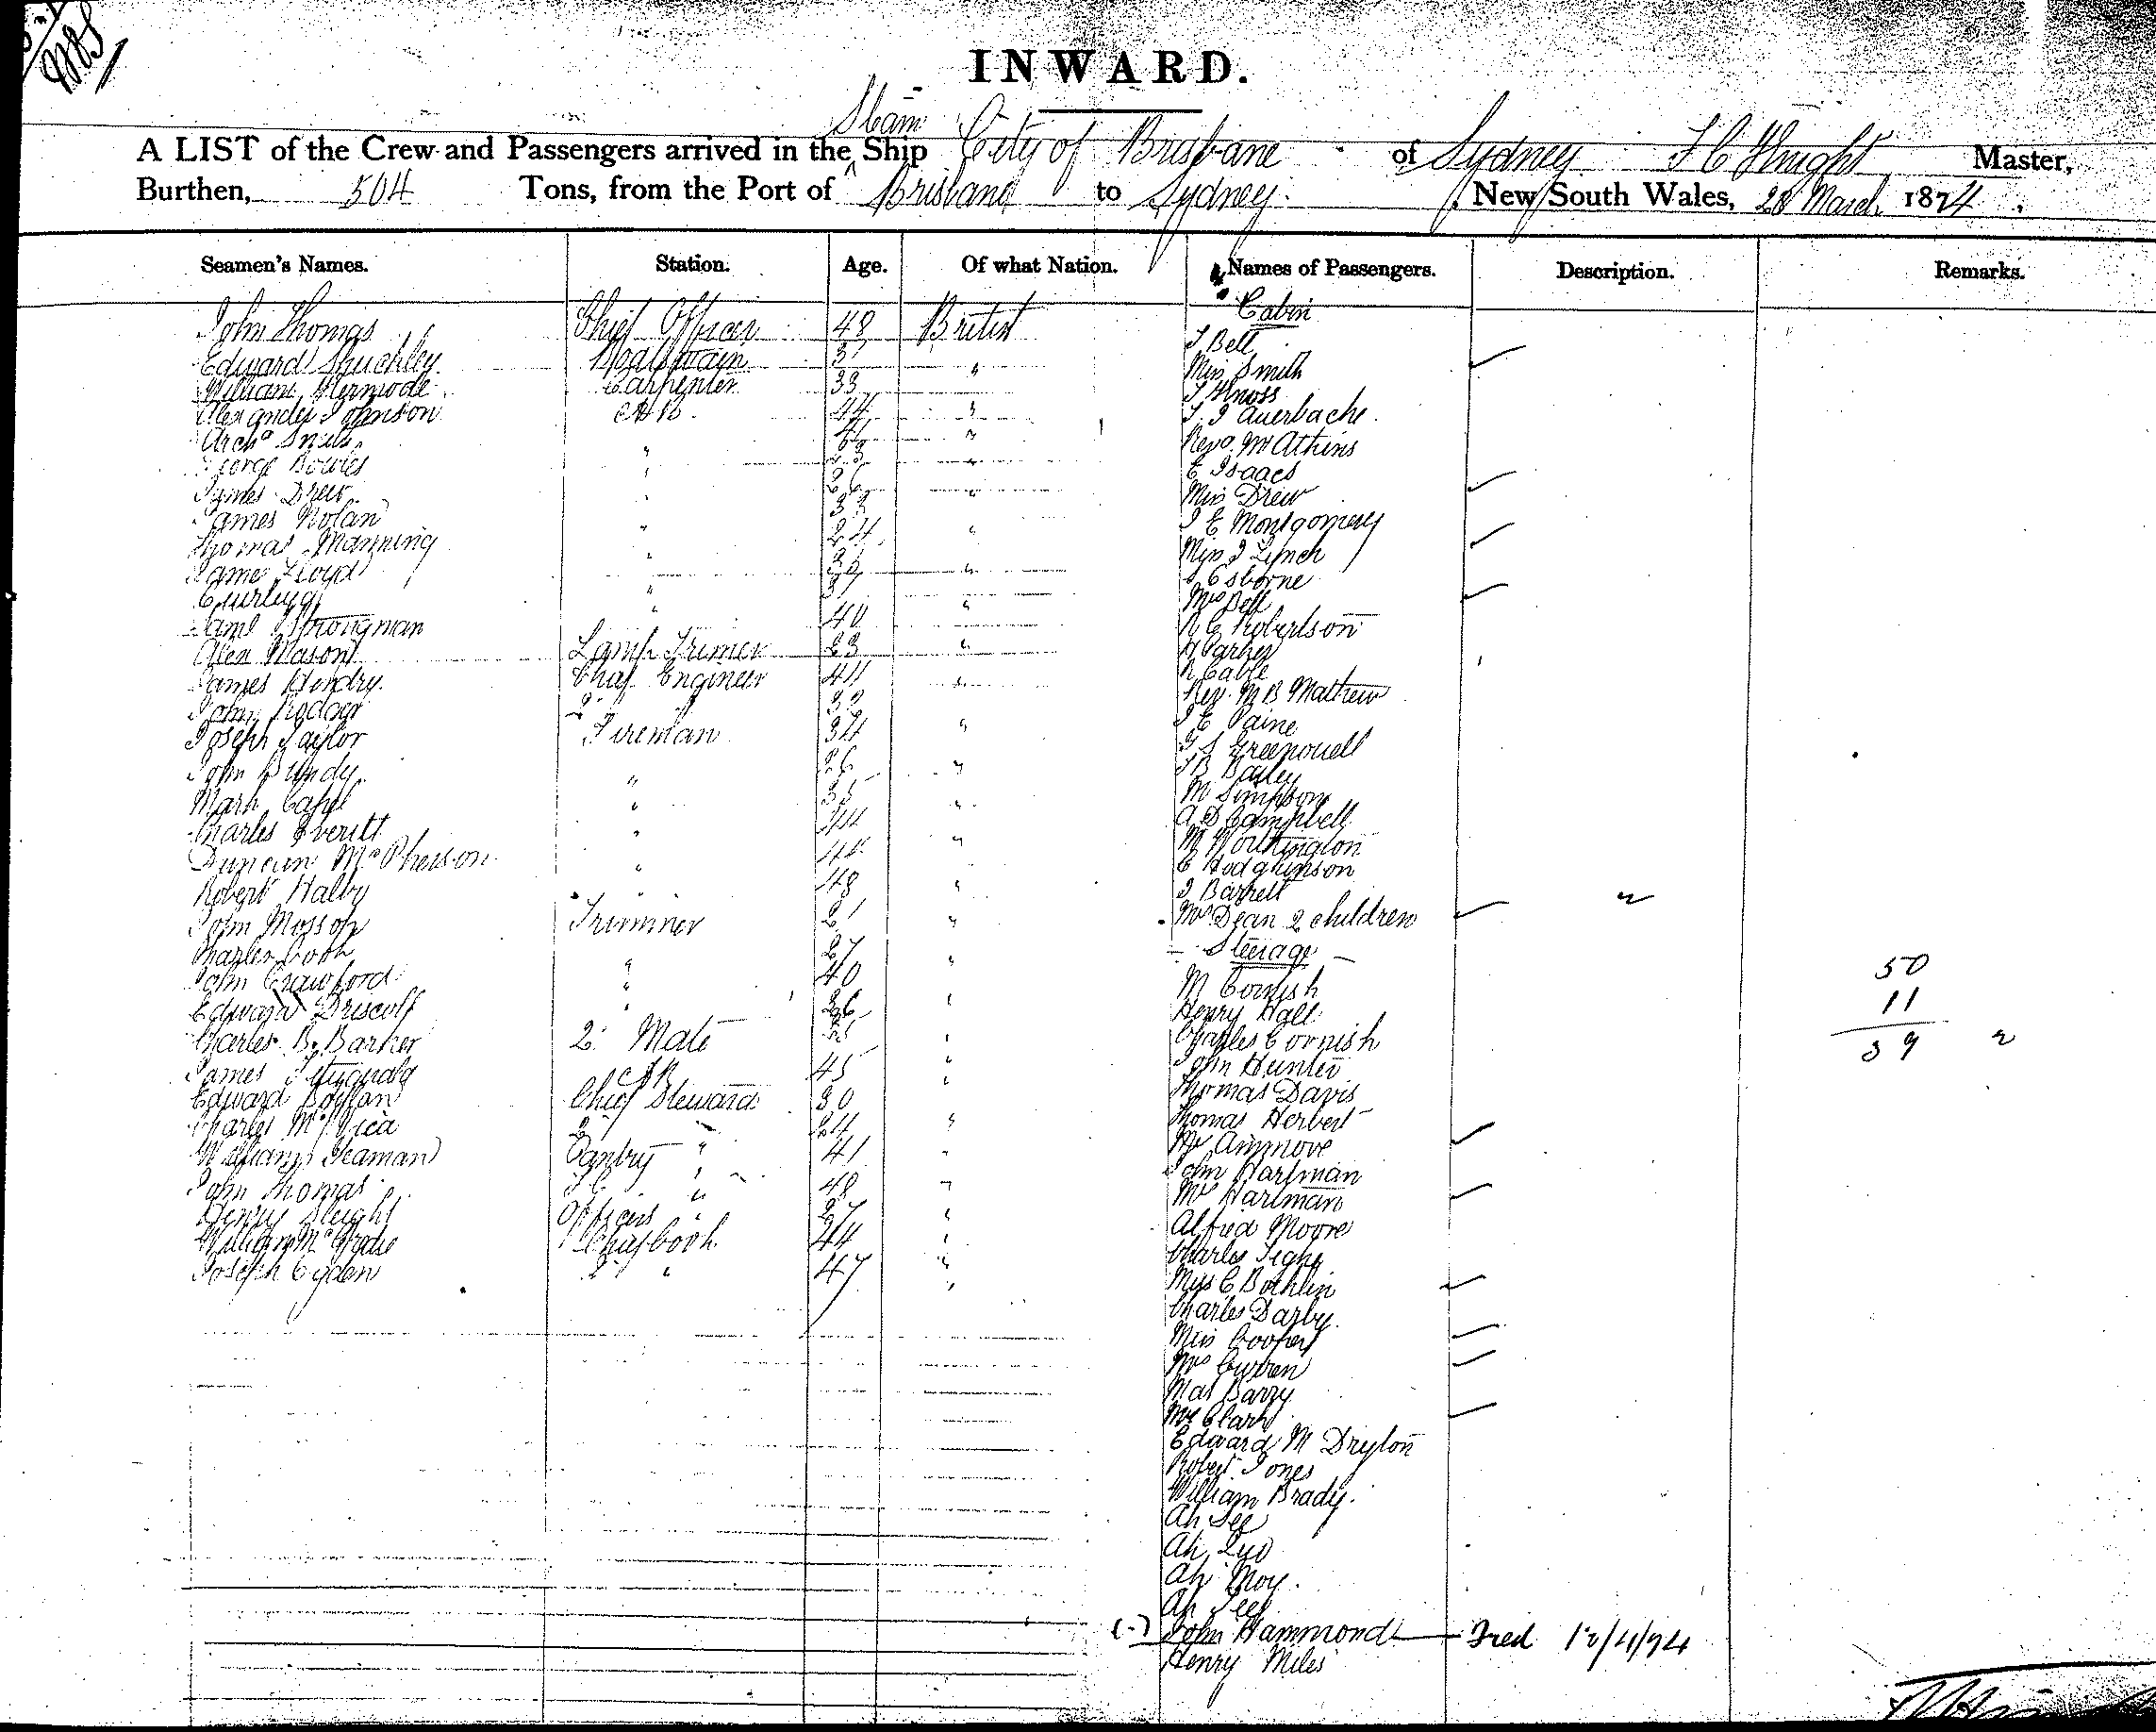 INWARD.
Steam
A LIST of the Crew and Passengers arrived in the ^ Ship City of Brisbane of Sydney Knight Master,
Burthen, 504 Tons, from the Port of Brisbane to Sydney. New South Wales, 28 March 1874,
Seamen's Names. Station. Age. Of what Nation. Names of Passengers. Description. Remarks.
Cabin
John Thomas Chief Officer 48 British
J Bell
Edward Boatswain "
Miss Smith
William Kermode Carpenter 33
Alexander Johnson AB 44 "
Auerbache
Arch Smith "
Revd Mr Atkins
George Bowles "
E Isaacs
James Drew 26 "
Miss Drew
James Nolan 33
J E Montgomery
Thomas Manning " 24 "
Miss J Lynch
James Lloyd " "
Osborne
Curling "
Mrs Bell
Strongman " 40 "
R C Robertson
Alex Mason Lamp Trimer 23 "
H Parker
James Hendry Chief Engineer 41 "
R Cable
Rev. M B Mathew
John Rodger 2 33
J E Paine
Joseph Taylor Fireman 34 "
Greenouell
John Bundy " 26 "
Bailey
Mark Capel " 35 "
M Simpson
Charles Everitt " "
A D Campbell
Duncan McPherson " 44 "
M Worthington
C Hodgkinson
Robert Halby " 48 "
J Barrett
John Mossop Trimmer 21 "
Mrs Dean 2 children
Steerage
Charles Cook " 27 "
John Crawford " 40
M Cornish
50
Edward Driscoll " 26 "
Henry Hall
11
Charles B. Barker 2 Mate "
Charles Cornish
39
James Fitzgerald AB 45 "
John Hunter
Edward Boylan Chief Steward 30
Thomas Davis
Charles 2 " 24 "
Thomas Herbert
William Seaman Pantry " 41 "
Mrs Ammore
John Hartman
John Thomas " 48 "
Mrs Hartman
Henry Sleight Officers " 27 "
Alfred Moore
William Chief Cook 44 "
Charles Tighe
Joseph Ogden 2 " 47 "
Miss C Bothlin
Charles Darby
Miss Cooper
Mrs Curren
Barry
Mrs Clark
Edward M Dryton
Robert Jones
William Brady.
Ah See
Ah
Ah Moy.
Ah
John Hammond 12/4/74
Henry Miles